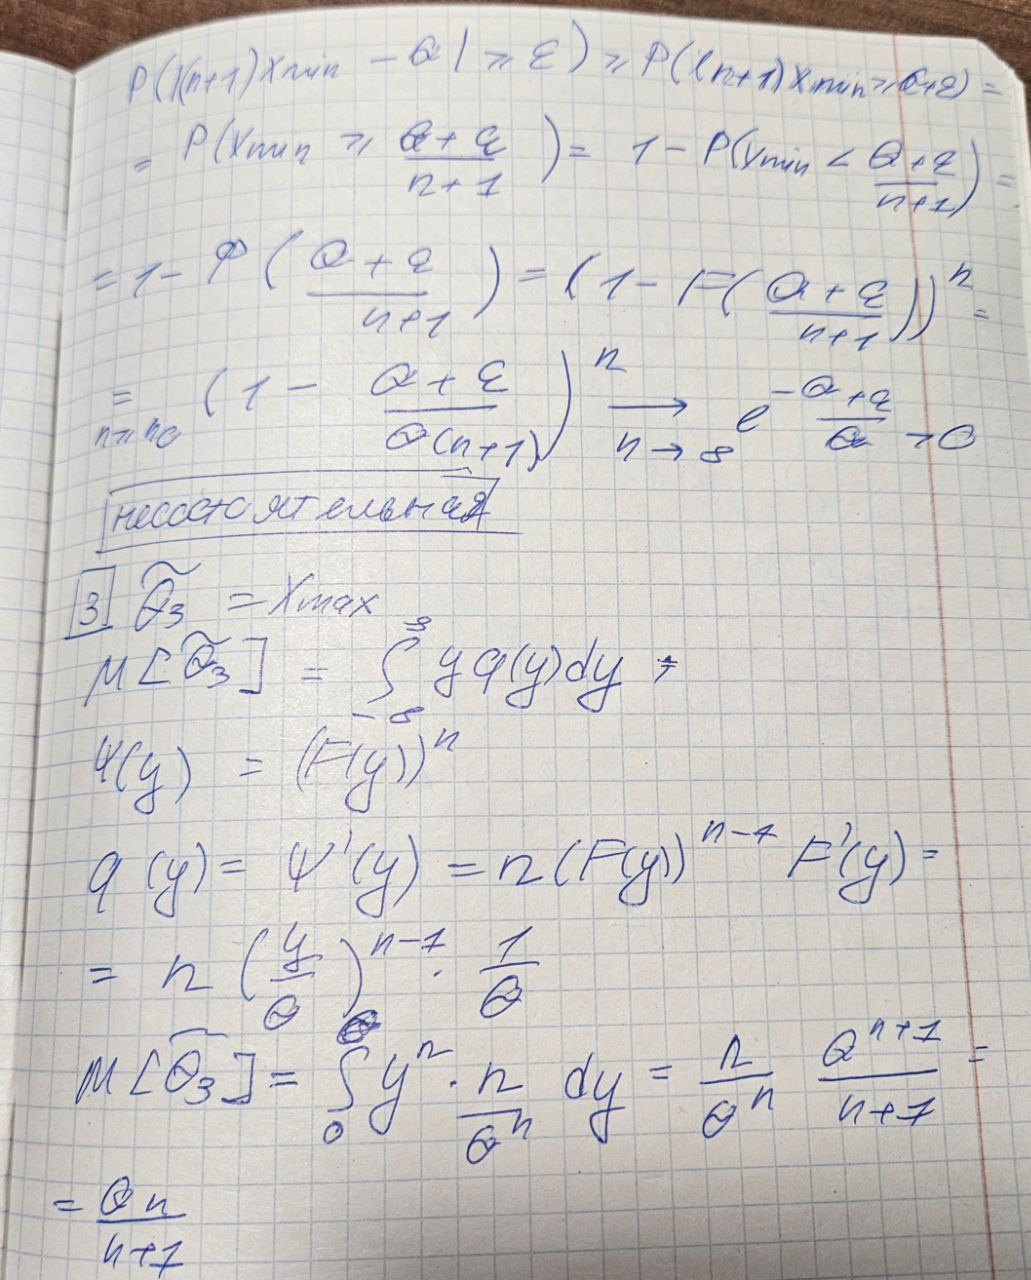 P(|(n+1)Xmin - θ| ⩾ ε) ⩾ P((n+1)Xmin ⩾ θ+ε) =
= P(Xmin ⩾ (θ+ε)/(n+1)) = 1 - P(Xmin < (θ+ε)/(n+1)) =
= 1 - Φ((θ+ε)/(n+1)) = (1 - F((θ+ε)/(n+1)))^n =
= (n ⩾ n0) (1 - (θ+ε)/(θ(n+1)))^n ⟶ (n→∞) e^(-(θ+ε)/θ) > 0
несостоятельная
3 θ̃3 = Xmax
M[θ̃3] = ∫_{-∞}^{∞} y φ(y)dy =
Ψ(y) = (F(y))^n
φ(y) = Ψ'(y) = n(F(y))^(n-1) F'(y) =
= n (y/θ)^(n-1) · 1/θ
M[θ̃3] = ∫_0^θ y^n · n/θ^n dy = n/θ^n θ^(n+1)/(n+1) =
= θn/(n+1)